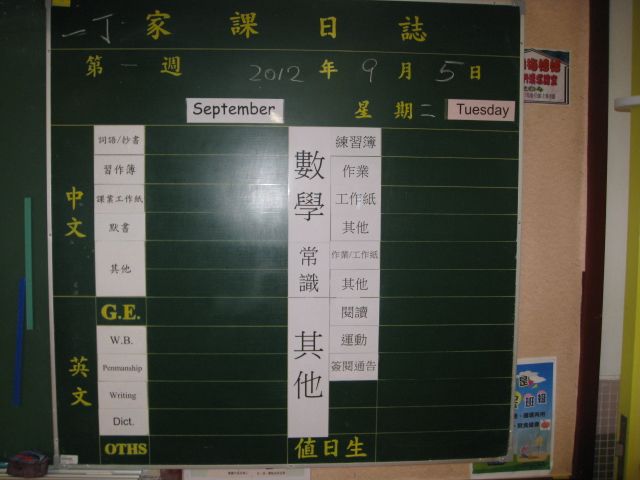 一丁 家課日誌
第一週 2012年9月5日
September 星期二 Tuesday
中文
詞語/抄書
習作簿
課業工作紙
默書
其他
英文
G.E.
W.B.
Penmanship
Writing
Dict.
OTHS
數學
練習簿
作業
工作紙
其他
常識
作業/工作紙
其他
其他
閱讀
運動
簽閱通告
值日生